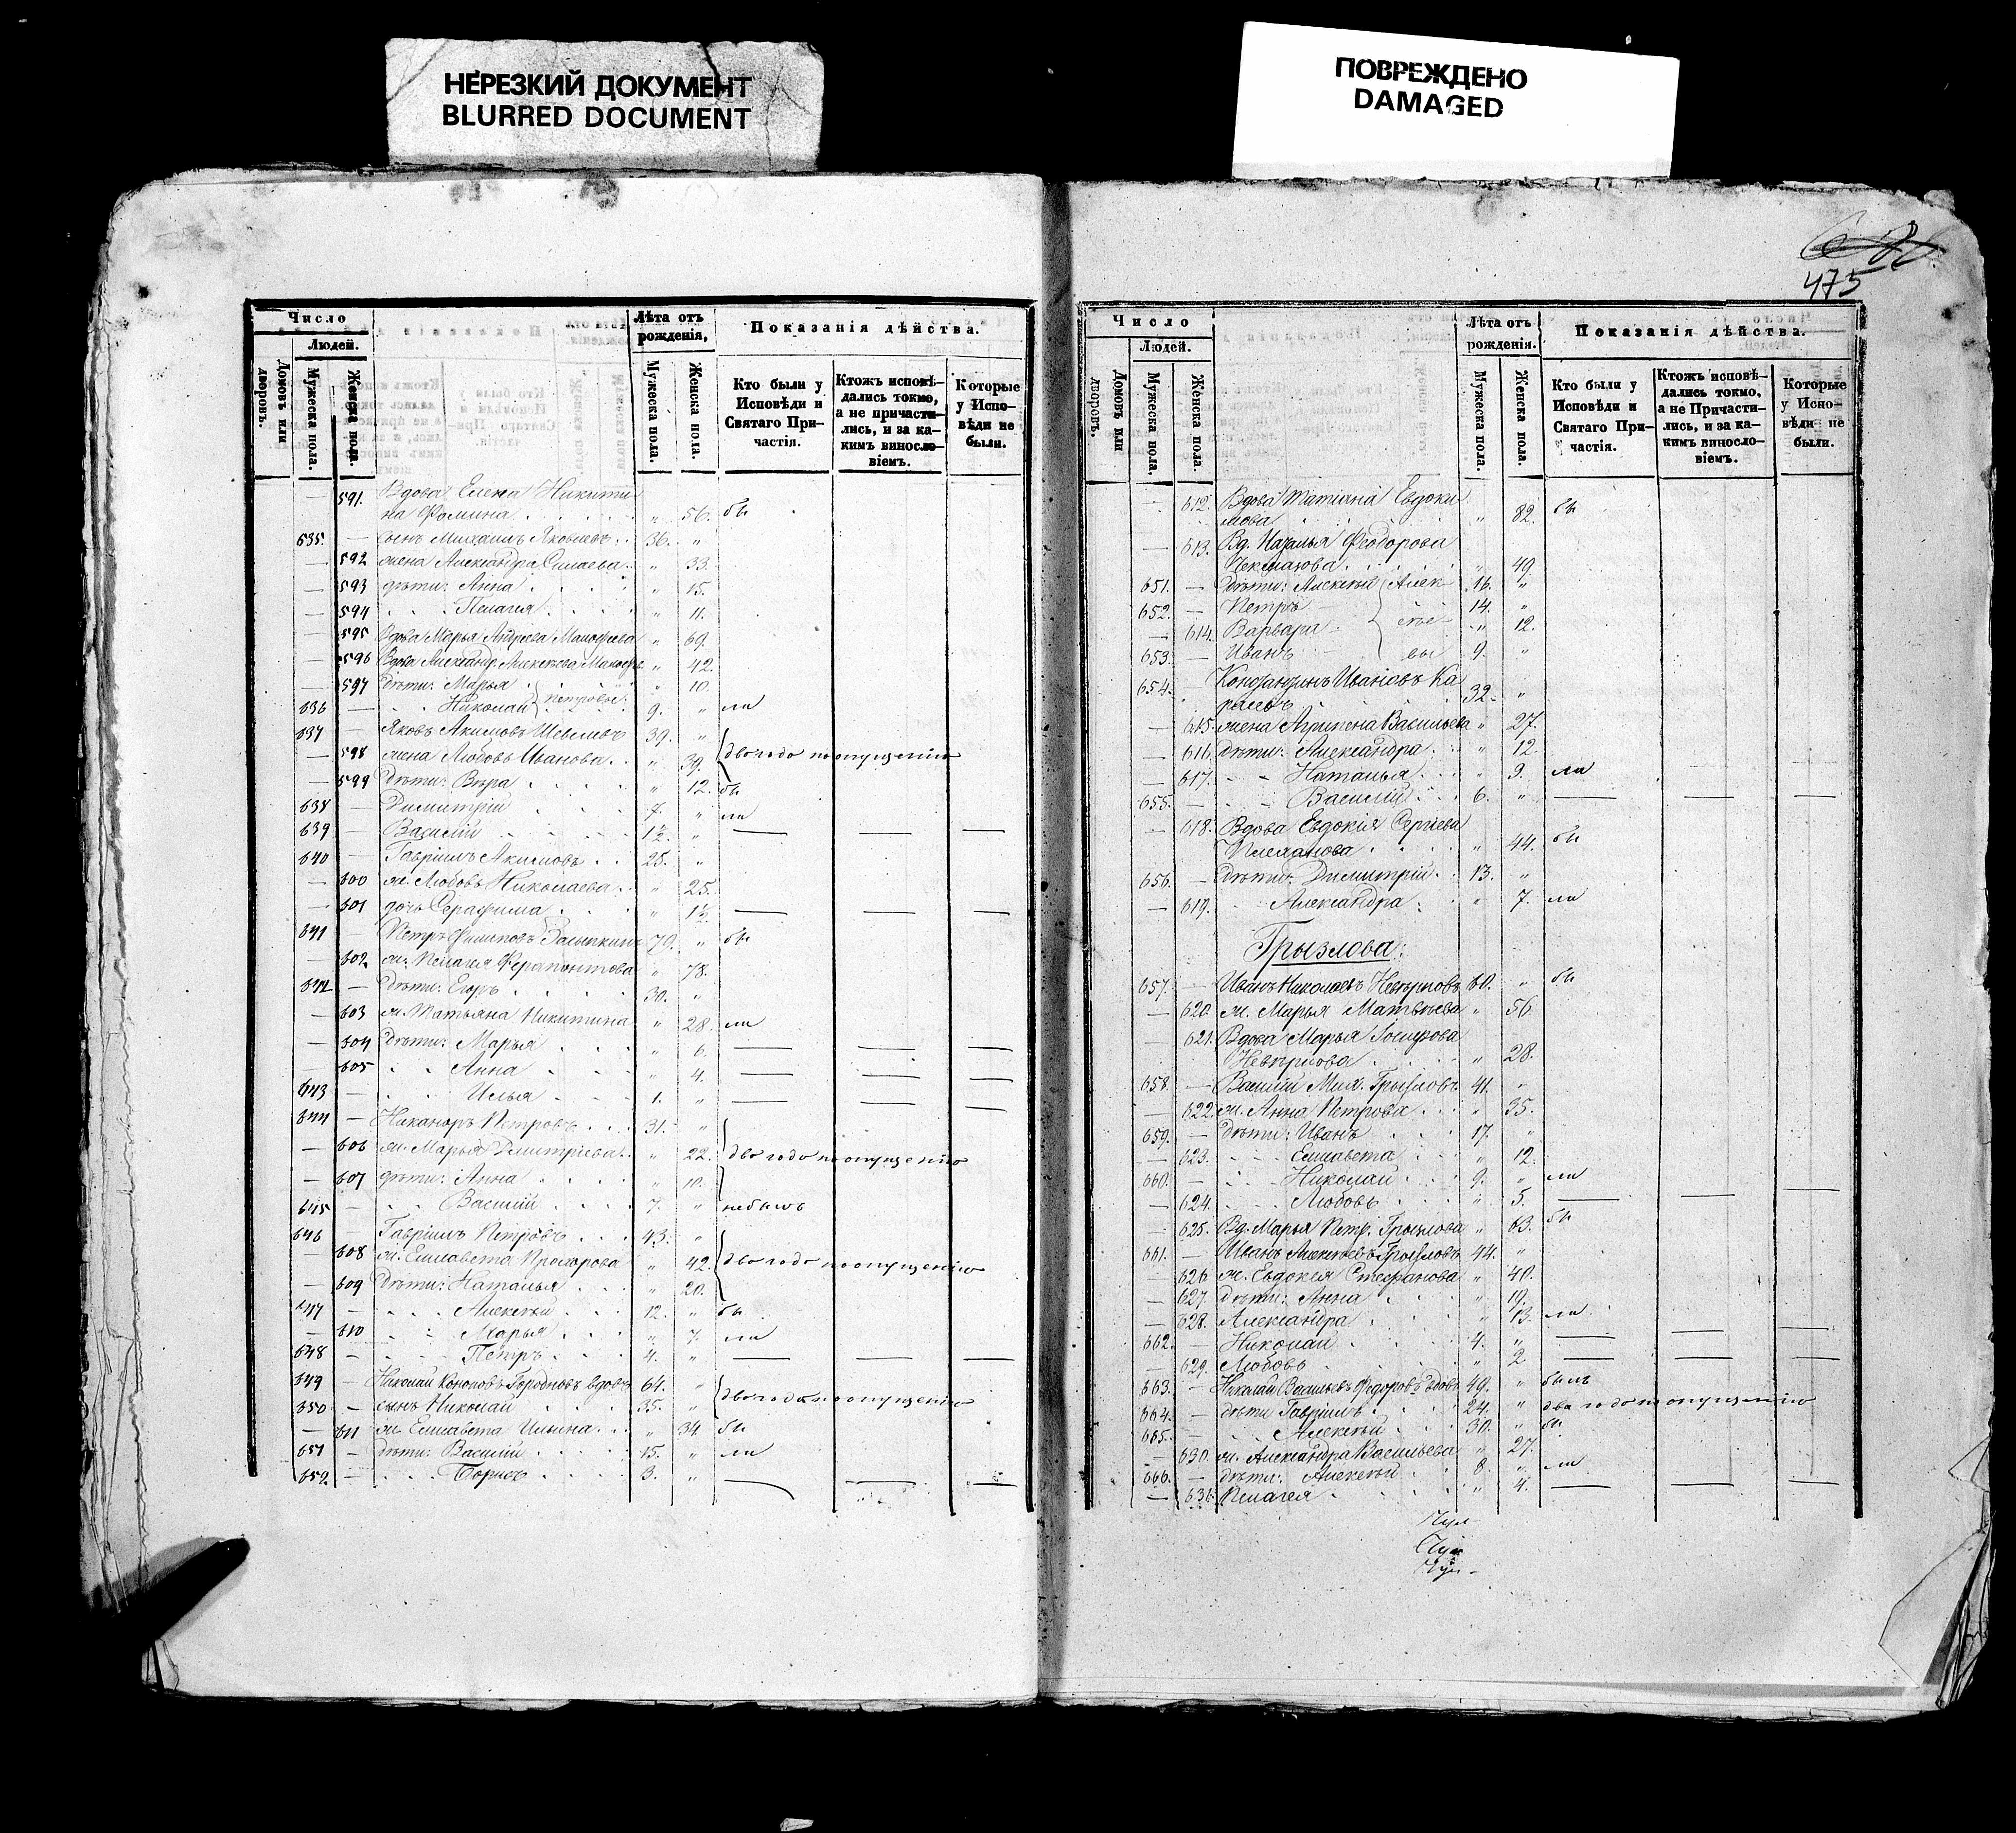 НЕРЕЗКИЙ ДОКУМЕНТ
BLURRED DOCUMENT
ПОВРЕЖДЕНО
DAMAGED
475
Число
Людей.
Домовъ или дворовъ.
Мужеска пола.
Женска пола.
Лѣта отъ рожденія,
Мужеска пола.
Женска пола.
Показанія дѣйства.
Кто были у Исповѣди и Святаго Причастія.
Ктожъ исповѣдались токмо, а не причастились, и за какимъ винословіемъ.
Которые у Исповѣди не были.
591. Вдова Елена Никити
на Фомина . . . . „ 56. бы
635. — сынъ Михаилъ Яковлевъ . . 36. „
— 592 жена Александра Силаева . . „ 33.
— 593 дѣти: Анна . . . „ 15.
— 594 . . Пелагея . . . „ 11.
— 595 Вдова Марья Андреева „ 69.
— 596 Вдова Александр. Алексѣева „ 42.
— 597 Дѣти: Марья . „ 10.
636 — . . Николай Петровы . 9. „ ли
637 — Яковъ Акимовъ 39. „
— 598 жена Любовь Иванова . . „ 39. два года по опущенію
— 599 Дѣти: Вѣра . . . . „ 12. бы
638 — Димитрій . . . 7. „ ли
639 — Василій . . . 1½. „ — — —
640 — Гавріилъ Акимовъ . . 25. „
— 600 ж. Любовь Николаева . . „ 25.
— 601 дочь Серафима . . . „ 1½. — — —
641 — Петръ Филиповъ 70. „ бы
— 602 ж. Пелагея Ферапонтова „ 78.
642 — Дѣти: Егоръ . . . . 30. „
— 603 ж. Татьяна Никитина „ 28. ли
— 604 Дѣти: Марья . . . „ 6. — — —
— 605 . . Анна . . . „ 4. — — —
643 — . . Илья . . . 1. „ — — —
644 — Никаноръ Петровъ . . . 31. „
— 606 ж. Марья Дмитріева . . „ 22. два года по опущенію
— 607 дѣти: Анна . . . . „ 10.
645 — . . Василій . . . 7. „ небылъ
646 — Гавріилъ Петровъ . . . 43. „
— 608 ж. Елисавета Прохорова „ 42. два года по опущенію
— 609 Дѣти: Наталья . . . „ 20.
647 — . . . Алексѣй . . . 12. „ бы
— 610 . . Марья . . . „ 7. ли
648 — . . Петръ . . . 4. „ — — —
649 — Николай Кононовъ вдовъ 64. „ два года по опущенію
650 — сынъ Николай . . . 35. „
— 611 ж. Елисавета Ильина . . . „ 34. бы
651 — дѣти: Василій . . . . 15. „ ли
652. — . . . Борисъ . . . . 3. „ — — —
Число
Людей.
Домовъ или дворовъ.
Мужеска пола.
Женска пола.
Лѣта отъ рожденія.
Мужеска пола.
Женска пола.
Показанія дѣйства.
Кто были у Исповѣди и Святаго Причастія.
Ктожъ исповѣдались токмо, а не Причастились, и за какимъ винословіемъ.
Которые у Исповѣди не были.
— 612. Вдова Татіана Евдоки
мова . . . . . „ 82. бы
— 613. Вд. Наталья Феодорова
„ 49
651. — Дѣти: Алексѣй Алек- 16. „
652. — Петръ 14. „
— 614. Варвара сѣе- „ 12.
653. — Иванъ вы 9. „
654. Константинъ Ивановъ Ка
32. „
— 615. жена Агрипена Васильева „ 27.
— 616. дѣти: Александра . . „ 12.
— 617. - - Наталья . . . „ 9. ли
655. — - - Василій . . . 6. „ — — —
— 618. Вдова Евдокія Сергіева
Плеханова . . . . „ 44. бы
656. — Дѣти: Димитрій . . 13. „
— 619. - Александра . „ 7. ли
Грызлова:
657. — Иванъ Николаевъ 60. „ бы
— 620. ж. Марья Матвѣева „ 56
— 621. Вдова Марья
„ 28.
658. — Василій Мих. Грызловъ 41. „
— 622. ж. Анна Петрова . . . „ 35.
659. — Дѣти: Иванъ . . . 17. „
— 623. - - - Елисавета . . . „ 12.
660. — - - Николай . . . 9. „ ли
— 624. - - Любовь . . . „ 5. — — —
— 625. Вд. Марья Петр. Грызлова „ 63. бы
661. — Иванъ Алексѣевъ Грызловъ 44. „
— 626 ж. Евдокея Стефанова „ 40.
— 627. дѣти: Анна . . . „ 19.
— 628. Александра . . . . „ 13. ли
662. — Николай . . . . 4. „ — — —
— 629. Любовь . . . . „ 2. — — —
663. — Николай Васильевъ Федоровъ вдовъ 49. „ былъ
664. — дѣти Гавріилъ . . . . 24. „ два года по опущенію
665. — . . Алексѣй . . . 30. „ бы
— 630. ж. Александра Васильева „ 27.
666. — дѣти: Алексѣй . . 8. „ ли
— 631. Пелагея . . . . „ 4. — — —